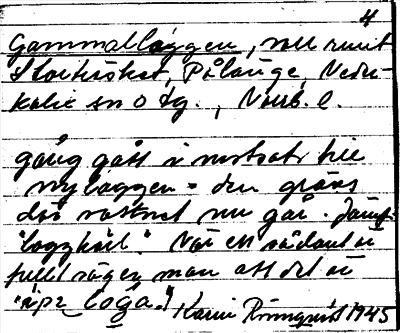 4
Gammalläggen, vall runt
Storträsket, Pålänge, Neder-
kalix sn o tg., Norrb. l.
gång gått i motsats till
nyläggen = den gräns
där vattnet nu går. Jämf.
"logghäll". När ett sådant är
fullt säger man att det är
Karin Rönnqvist 1945